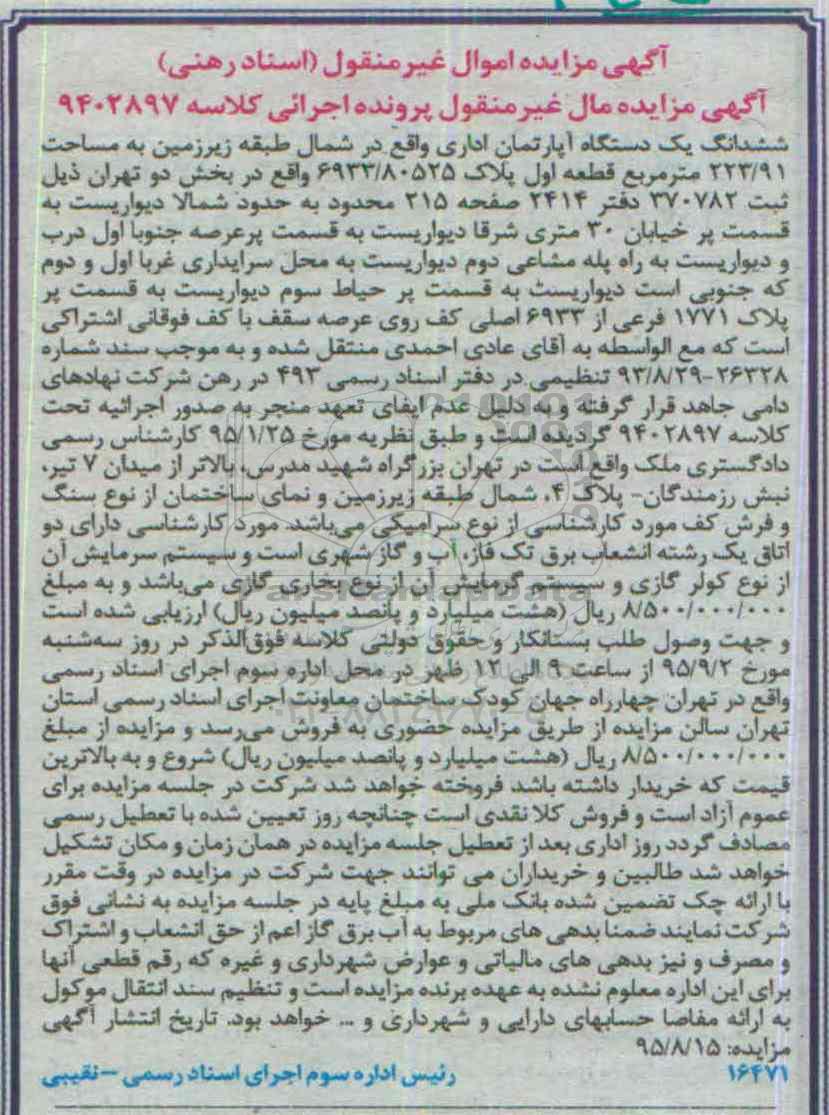 آگهی مزایده اموال غیرمنقول (اسناد رهنی)
آگهی مزایده مال غیرمنقول پرونده اجرائی کلاسه ۹۴۰۲۸۹۷
ششدانگ یک دستگاه آپارتمان اداری واقع در شمال طبقه زیرزمین به مساحت
۲۲۳/۹۱ مترمربع قطعه اول پلاک ۶۹۳۳/۸۰۵۲۵ واقع در بخش دو تهران ذیل
ثبت ۳۷۰۷۸۲ دفتر ۲۴۱۴ صفحه ۲۱۵ محدود به حدود شمالا دیواریست به
قسمت پر خیابان ۳۰ متری شرقا دیواریست به قسمت پرعرصه جنوبا اول درب
و دیواریست به راه پله مشاعی دوم دیواریست به محل سرایداری غربا اول و دوم
که جنوبی است دیواریست به قسمت پر حیاط سوم دیواریست به قسمت پر
پلاک ۱۷۷۱ فرعی از ۶۹۳۳ اصلی کف روی عرصه سقف با کف فوقانی اشتراکی
است که مع الواسطه به آقای عادی احمدی منتقل شده و به موجب سند شماره
۲۶۳۲۸-۹۳/۸/۲۹ تنظیمی در دفتر اسناد رسمی ۴۹۳ در رهن شرکت نهادهای
دامی جاهد قرار گرفته و به دلیل عدم ایفای تعهد منجر به صدور اجرائیه تحت
کلاسه ۹۴۰۲۸۹۷ گردیده است و طبق نظریه مورخ ۹۵/۱/۲۵ کارشناس رسمی
دادگستری ملک واقع است در تهران بزرگراه شهید مدرس، بالاتر از میدان ۷ تیر،
نبش رزمندگان- پلاک ۴، شمال طبقه زیرزمین و نمای ساختمان از نوع سنگ
و فرش کف مورد کارشناسی از نوع سرامیکی می‌باشد. مورد کارشناسی دارای دو
اتاق یک رشته انشعاب برق تک فاز، آب و گاز شهری است و سیستم سرمایش آن
از نوع کولر گازی و سیستم گرمایش آن از نوع بخاری گازی می‌باشد و به مبلغ
۸/۵۰۰/۰۰۰/۰۰۰ ریال (هشت میلیارد و پانصد میلیون ریال) ارزیابی شده است
و جهت وصول طلب بستانکار و حقوق دولتی کلاسه فوق‌الذکر در روز سه‌شنبه
مورخ ۹۵/۹/۲ از ساعت ۹ الی ۱۲ ظهر در محل اداره سوم اجرای اسناد رسمی
واقع در تهران چهارراه جهان کودک ساختمان معاونت اجرای اسناد رسمی استان
تهران سالن مزایده از طریق مزایده حضوری به فروش می‌رسد و مزایده از مبلغ
۸/۵۰۰/۰۰۰/۰۰۰ ریال (هشت میلیارد و پانصد میلیون ریال) شروع و به بالاترین
قیمت که خریدار داشته باشد فروخته خواهد شد شرکت در جلسه مزایده برای
عموم آزاد است و فروش کلا نقدی است چنانچه روز تعیین شده با تعطیل رسمی
مصادف گردد روز اداری بعد از تعطیل جلسه مزایده در همان زمان و مکان تشکیل
خواهد شد طالبین و خریداران می توانند جهت شرکت در مزایده در وقت مقرر
با ارائه چک تضمین شده بانک ملی به مبلغ پایه در جلسه مزایده به نشانی فوق
شرکت نمایند ضمنا بدهی های مربوط به آب برق گاز اعم از حق انشعاب و اشتراک
و مصرف و نیز بدهی های مالیاتی و عوارض شهرداری و غیره که رقم قطعی آنها
برای این اداره معلوم نشده به عهده برنده مزایده است و تنظیم سند انتقال موکول
به ارائه مفاصا حسابهای دارایی و شهرداری و ... خواهد بود. تاریخ انتشار آگهی
مزایده: ۹۵/۸/۱۵
۱۶۴۷۱ رئیس اداره سوم اجرای اسناد رسمی –نقیبی